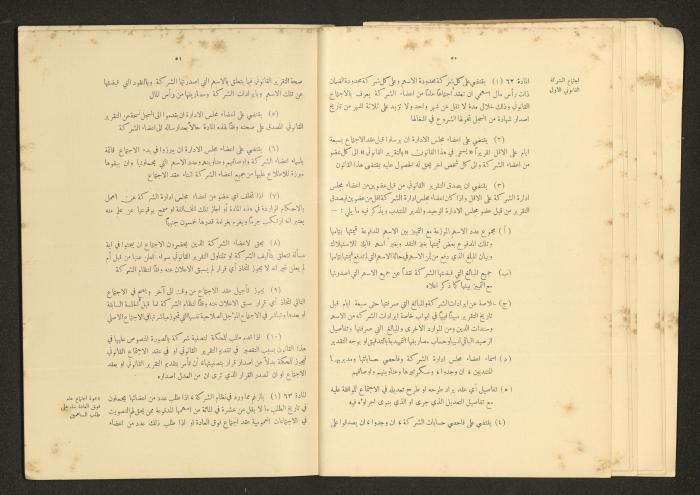 ٥٠
اجتماع الشركة
القانوني الاول
المادة ٦٢ (١) يقتضي على كل شركة محدودة الاسهم وعلى كل شركة محدودة الضمان
ذات رأس مال اسهمي ان تعقد اجتماعاً عاماً من اعضاء الشركة يعرف بالاجتماع
القانوني وذلك خلال مدة لا تقل عن شهر واحد ولا تزيد على ثلاثة اشهر من تاريخ
اصدار شهادة من السجل تخولها الشروع في اشغالها
(٢) يقتضي على اعضاء مجلس الادارة ان يرسلوا قبل عقد الاجتماع بسبعة
ايام على الاقل تقريراً «يسمى في هذا القانون «بالتقرير القانوني» الى كل عضو
من اعضاء الشركة والى كل شخص اخر يحق له الحصول عليه بمقتضى هذا القانون
(٣) يقتضي ان يصدق التقرير القانوني من قبل عضوين من اعضاء مجلس
ادارة الشركة على الاقل واذا كان اعضاء مجلس ادارة الشركة اقل من عضوين فيصدق
التقرير من قبل عضو مجلس الادارة الوحيد والمدير المنتدب ويذكر فيه ما يلي :—
(أ) مجموع عدد الاسهم الموزعة مع التمييز بين الاسهم المدفوعة قيمتها بتمامها
وتلك المدفوع بعض قيمتها بغير النقد وبغير اسهم قابلة للاستهلاك
وبيان المبلغ الذي دفع من ثمن الاسهم في حالة الاسهم التي لم تدفع قيمتها بتمامها
(ب) جميع المبالغ التي قبضتها الشركة نقداً عن جميع الاسهم التي اصدرتها
مع التمييز بينها كما ذكر اعلاه
(ج) خلاصة عن ايرادات الشركة والمبالغ التي صرفتها حتى سبعة ايام قبل
تاريخ التقرير مبيناً فيها في ابواب خاصة ايرادات الشركة من الاسهم
وسندات الدين ومن الموارد الاخرى والمبالغ التي صرفتها وتفاصيل
الرصيد الباقي لديها وحساب مصاريفها التمهيدية بالتدقيق او بوجه التقدير
(د) اسماء اعضاء مجلس ادارة الشركة وفاحصي حساباتها ومديريها
المنتدبين ، ان وجدوا ، وسكرتيرها وعناوينهم واوصافهم
(ه) تفاصيل أي عقد يراد طرحه او طرح تعديله في الاجتماع للموافقة عليه
مع تفاصيل التعديل الذي جرى او الذي ينوى اجراؤه فيه
(٤) يقتضي على فاحصي حسابات الشركة ، ان وجدوا ، ان يصدقوا على
٥١
صحة التقرير القانوني فيما يتعلق بالاسهم التي اصدرتها الشركة وبالنقود التي قبضتها
عن تلك الاسهم وبايرادات الشركة ومصاريفها من رأس المال
(٥) يقتضي على اعضاء مجلس الادارة ان يقدموا الى السجل نسخة من التقرير
القانوني المصدق على صحته وفقاً لهذه المادة حالاً بعد ارساله الى اعضاء الشركة
(٦) يقتضي على اعضاء مجلس الادارة ان يبرزوا في بدء الاجتماع قائمة
باسماء اعضاء الشركة واوصافهم وعناوينهم وعدد الاسهم التي يحملونها وان يبقوها
مبرزة للاطلاع عليها من جميع اعضاء الشركة اثناء عقد الاجتماع
(٧) اذا تخلف أي عضو من اعضاء مجلس ادارة الشركة عن العمل
بالاحكام الواردة في هذه المادة أو اجاز تلك المخالفة او سمح بوقوعها عن علم منه
يعتبر انه ارتكب جرماً ويغرم بغرامة قدرها خمسون جنيهاً
(٨) يحق لاعضاء الشركة الذين يحضرون الاجتماع ان يبحثوا في اية
مسألة تتعلق بتأليف الشركة او تتناول التقرير القانوني سواء اعلن عنها من قبل أم
لم يعلن غير انه لا يجوز اتخاذ أي قرار لم يسبق الاعلان عنه وفقاً لنظام الشركة
(٩) يجوز تأجيل عقد الاجتماع من وقت الى آخر ويصح في الاجتماع
التالي اتخاذ أي قرار سبق الاعلان عنه وفقاً لنظام الشركة اما قبل الجلسة السابقة
او بعدها وتباشر في الاجتماع المؤجل الصلاحية نفسها التي تجوز مباشرتها في الاجتماع الاصلي
(١٠) اذا قدم طلب للمحكمة لتصفية شركة بالصورة المنصوص عليها في
هذا القانون بسبب التقصير في تقديم التقرير القانوني او في عقد الاجتماع القانوني
فيجوز للمحكمة بدلاً من اصدار قرار بتصفيتها ان تأمر بتقديم التقرير القانوني او بعقد
الاجتماع او ان تصدر القرار الذي ترى ان من العدل اصداره
دعوة اجتماع عام
فوق العادة بناء على
طلب المساهمين
المادة ٦٣ (١) بالرغم مما ورد في نظام الشركة ، اذا طلب عدد من اعضائها يحملون
في تاريخ الطلب ما لا يقل عن عشرة في المائة من اسهمها المدفوعة ممن يحق لهم التصويت
في الاجتماعات العمومية عقد اجتماع فوق العادة او اذا طلب ذلك عدد من اعضاء